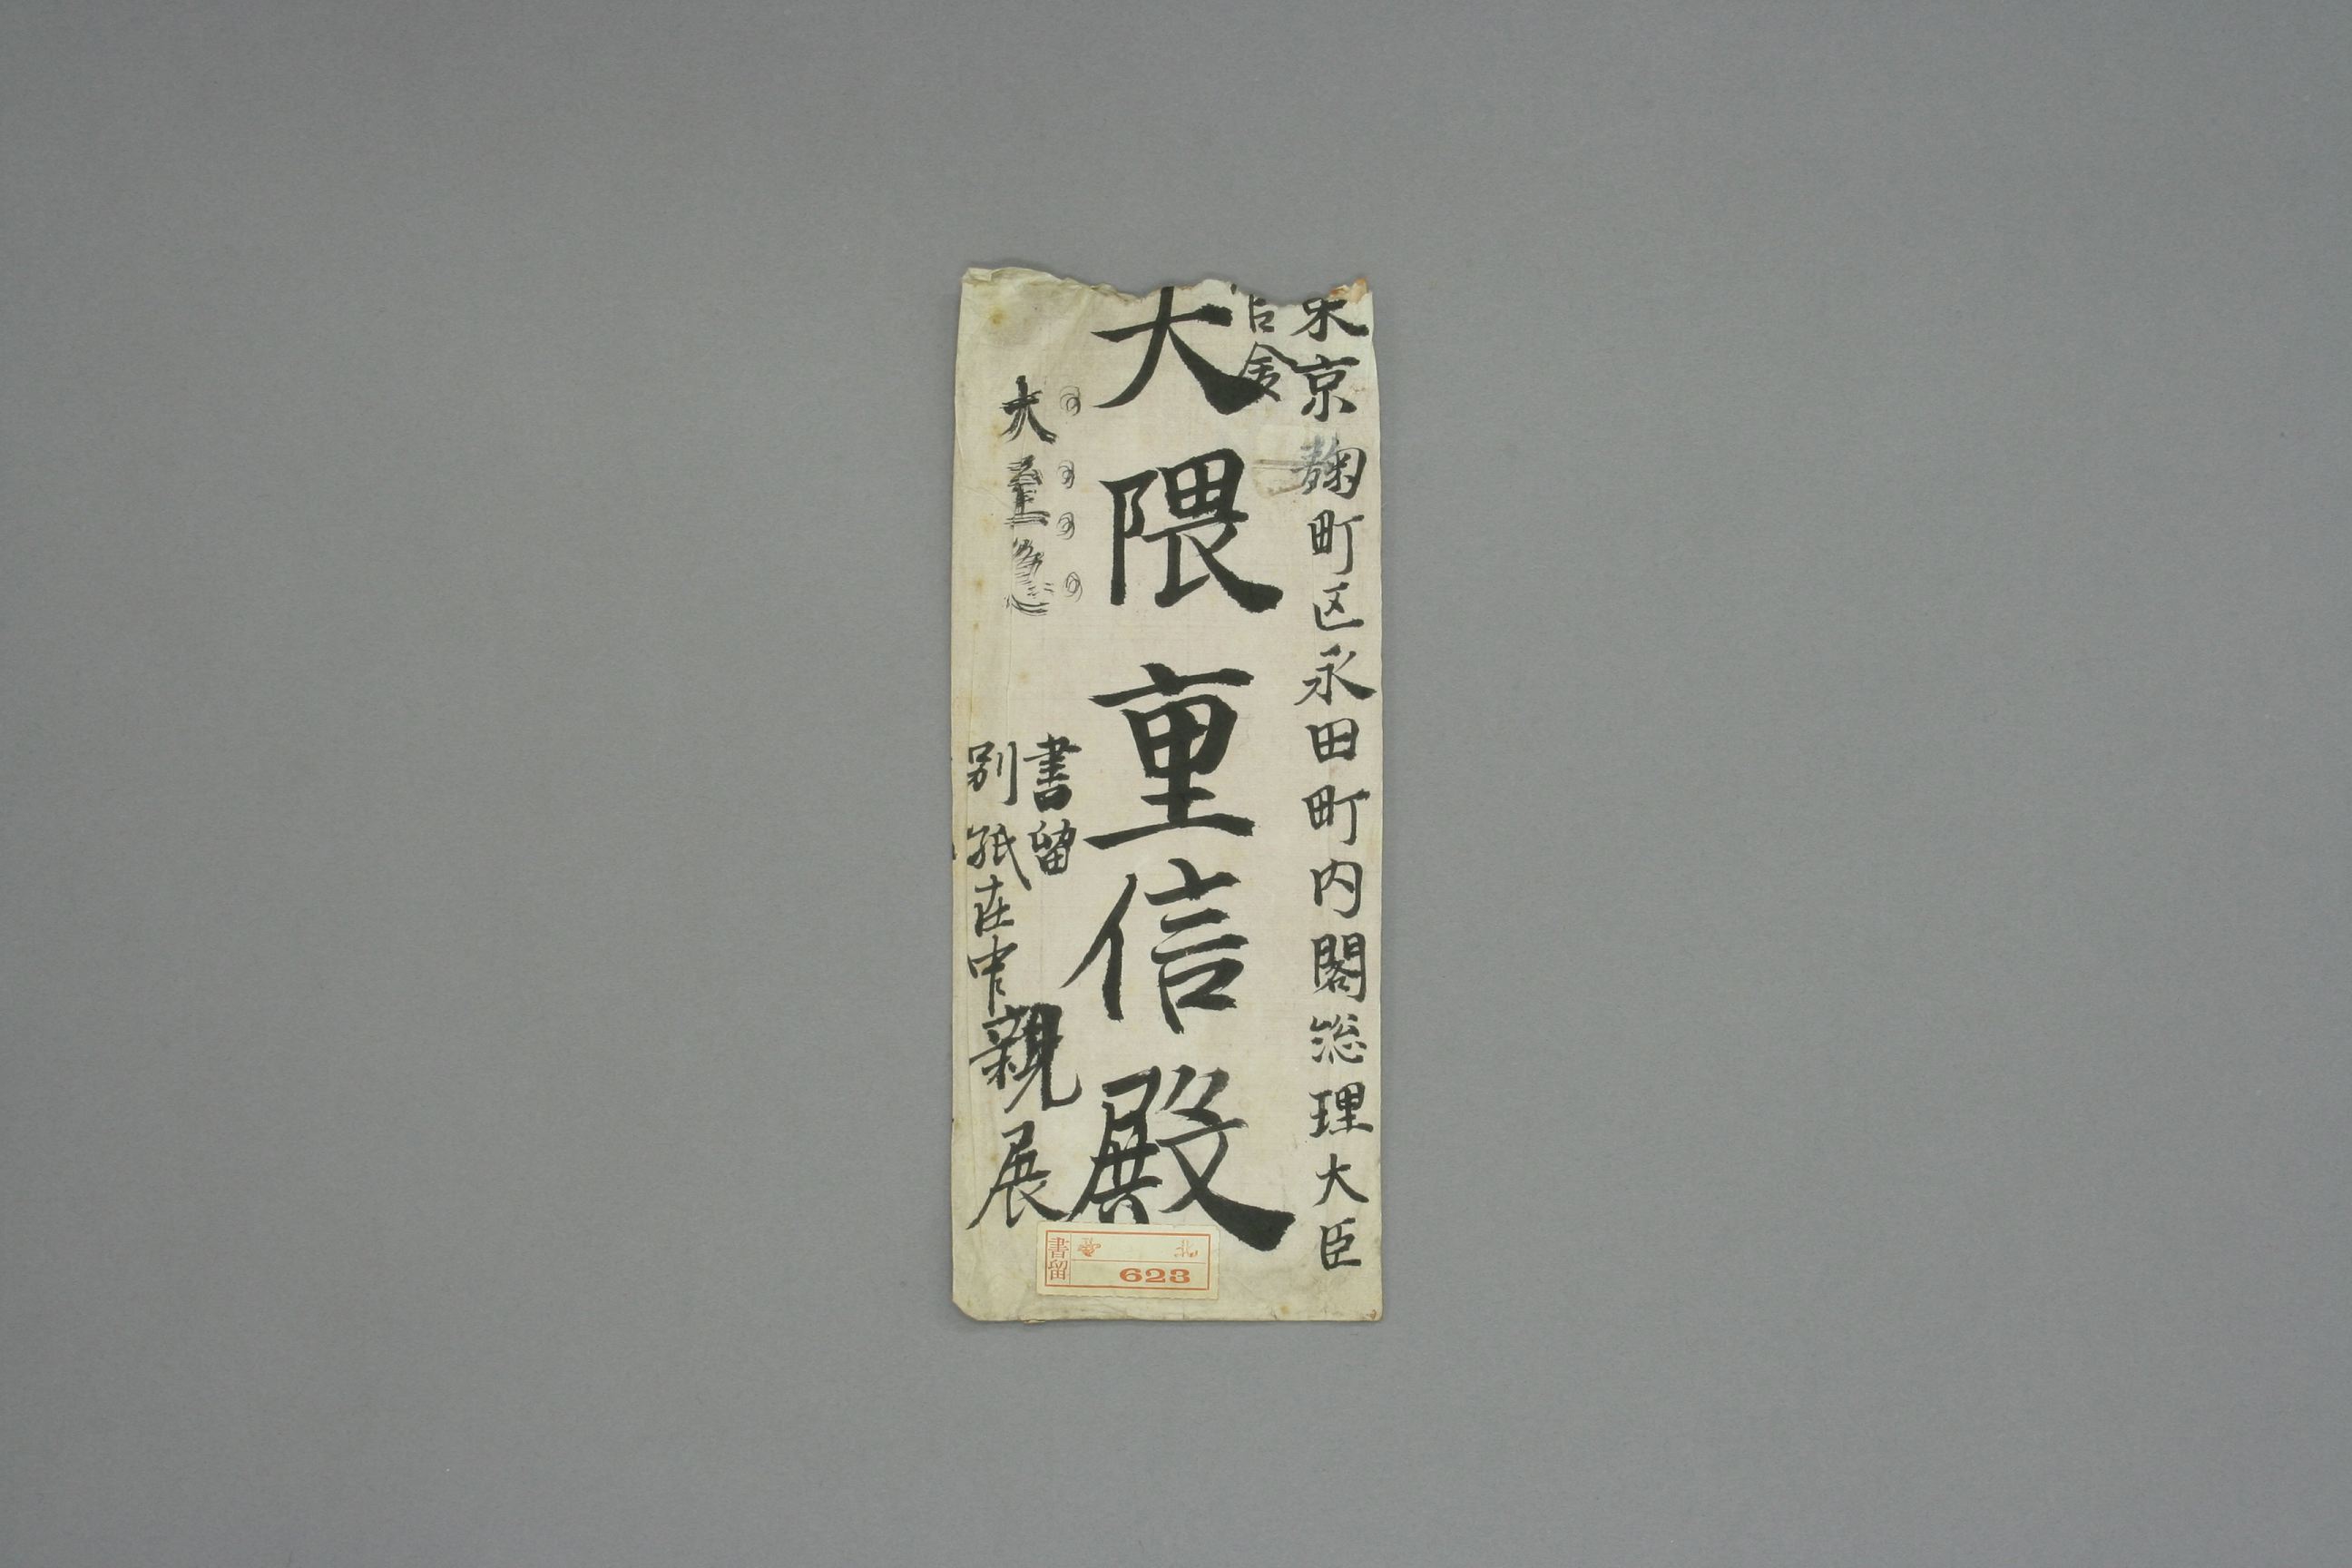 東京麹町区永田町内閣総理大臣
官舎
大隈重信殿
大至急
書留
別紙在中
親展
書留
623